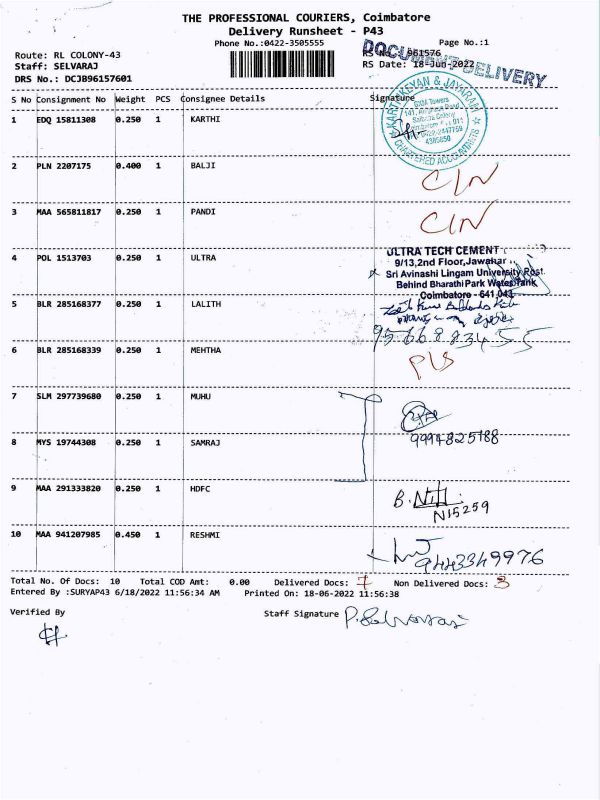 THE PROFESSIONAL COURIERS, Coimbatore
Delivery Runsheet - P43
Phone No.:0422-3505555
Page No.:1
DOCUMENT DELIVERY
RS No.: 961576
RS Date: 18-Jun-2022
Route: RL COLONY-43
Staff: SELVARAJ
DRS No.: DCJB96157601
S No Consignment No Weight PCS Consignee Details Signature
KARTHIKEYAN & JAYARAM
CHARTERED ACCOUNTANTS
Towers
141,
Saibaba Colony
0422-2447759
4385650
1 EDQ 15811308 0.250 1 KARTHI
2 PLN 2207175 0.400 1 BALJI
CIN
3 MAA 565811817 0.250 1 PANDI
CIN
4 POL 1513703 0.250 1 ULTRA
ULTRA TECH CEMENT
9/13,2nd Floor,Jawahar
Sri Avinashi Lingam University Post.
Behind Bharathi Park Water Tank
Coimbatore - 641 043
5 BLR 285168377 0.250 1 LALITH
9566883455
6 BLR 285168339 0.250 1 MEHTHA
PLS
7 SLM 297739680 0.250 1 MUHU
8 MYS 19744308 0.250 1 SAMRAJ
9994825188
9 MAA 291333820 0.250 1 HDFC
B. Nitil
N15259
10 MAA 941207985 0.450 1 RESHMI
9443349976
Total No. Of Docs: 10 Total COD Amt: 0.00 Delivered Docs: 7 Non Delivered Docs: 3
Entered By :SURYAP43 6/18/2022 11:56:34 AM Printed On: 18-06-2022 11:56:38
Verified By Staff Signature P. Selvaraj